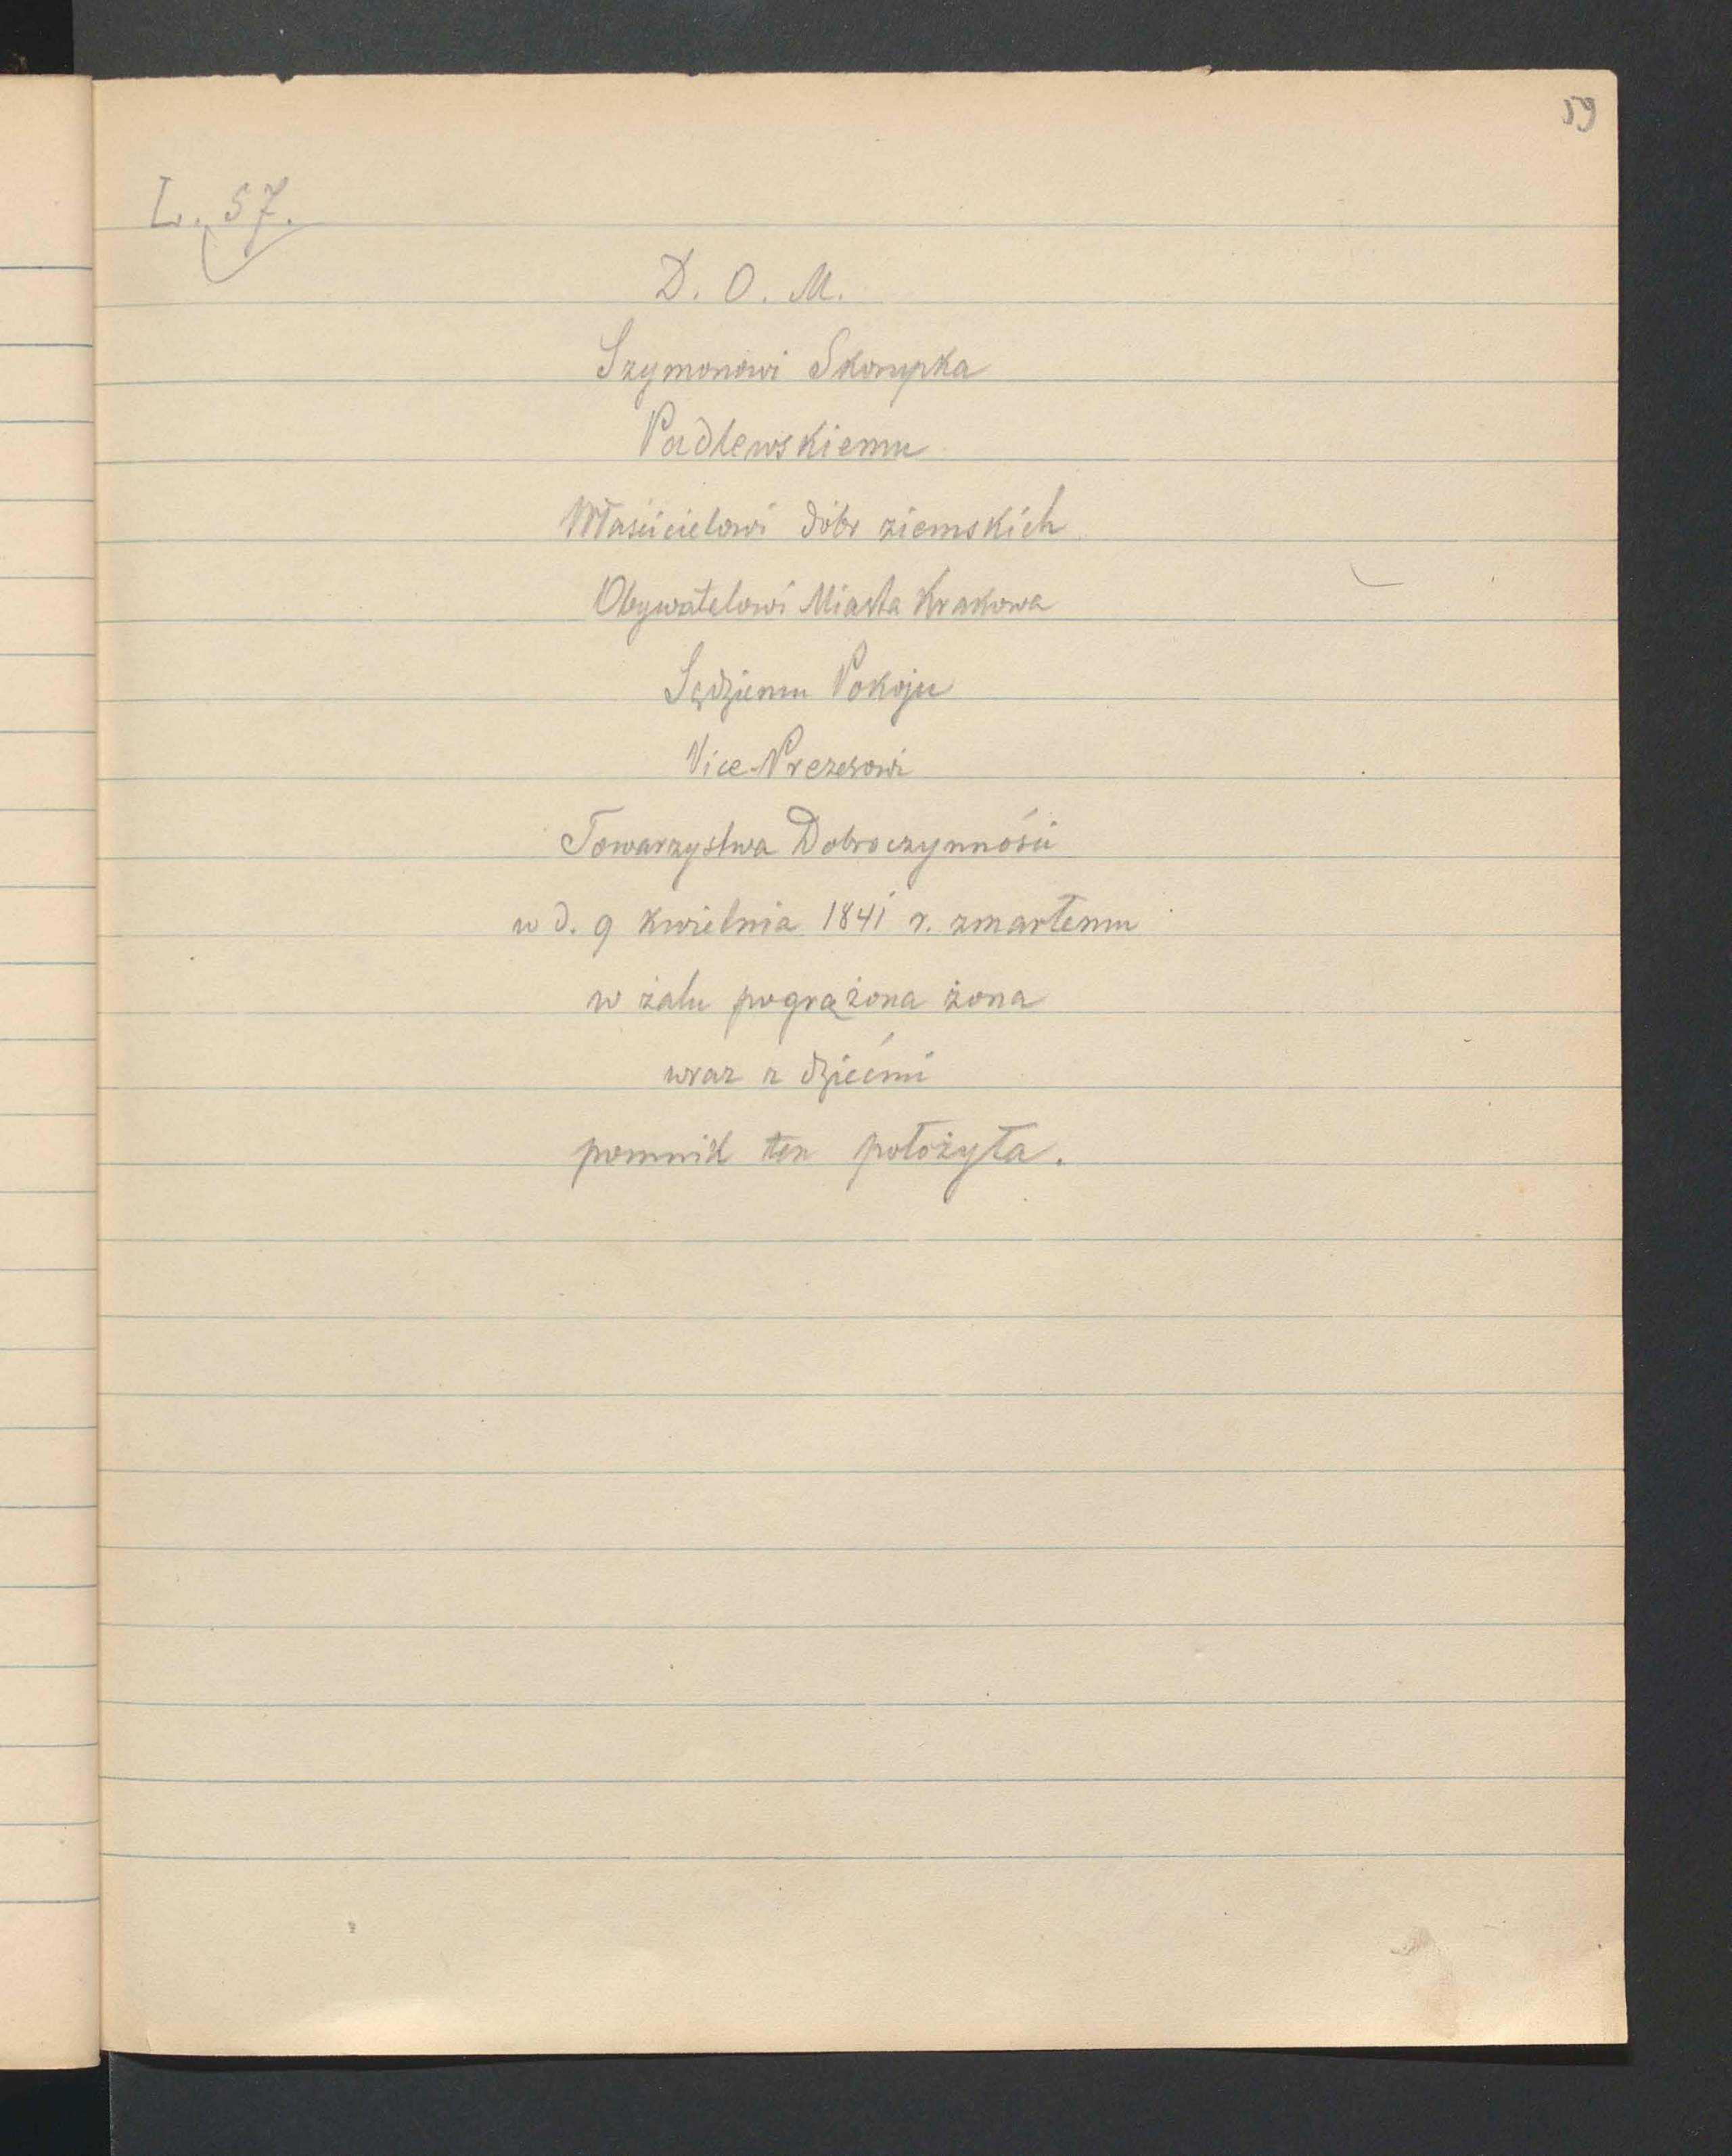 59
L. 57.
D. O. M.
Szymonowi Skorupka
Padlewskiemu
Właścicielowi dóbr ziemskich
Obywatelowi Miasta Krakowa
Sędziemu Pokoju
Vice-Prezesowi
Towarzystwa Dobroczynności
w d. 9 kwietnia 1841 r. zmarłemu
w żalu pogrążona żona
wraz z dziećmi
pomnik ten położyła.